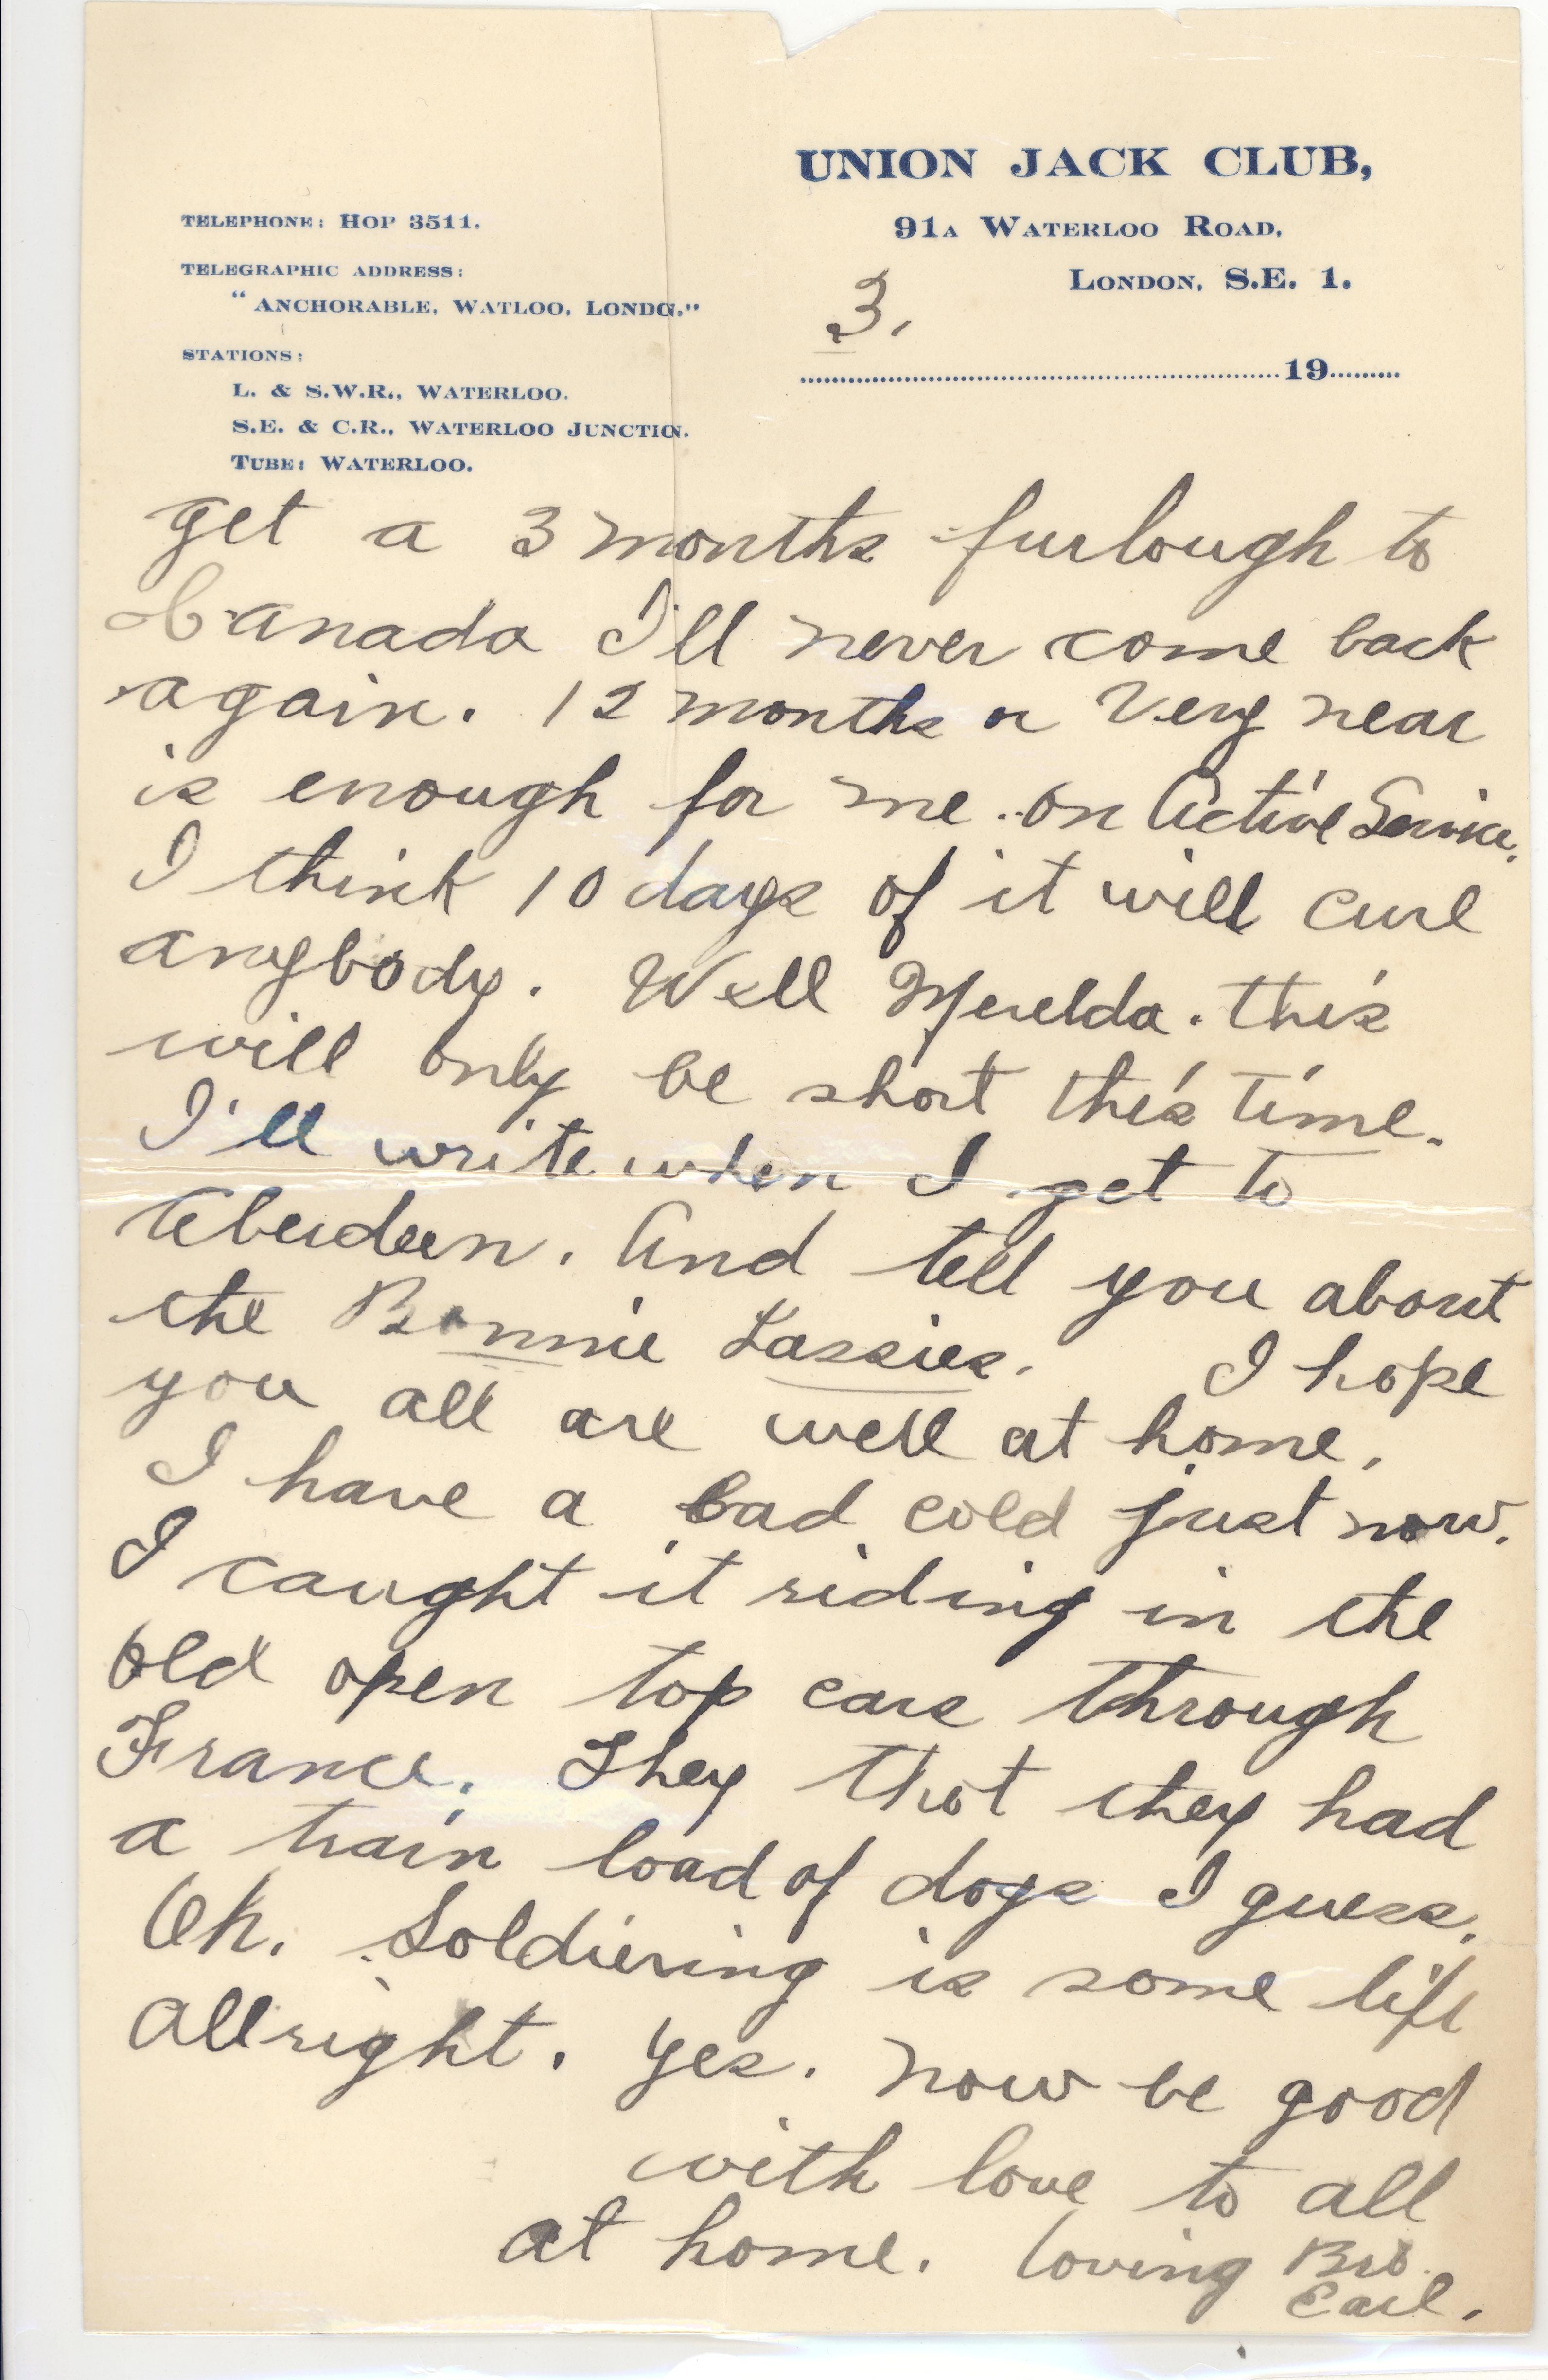 UNION JACK CLUB,
91A WATERLOO ROAD,
LONDON, S.E. 1.
TELEPHONE: HOP 3511.
TELEGRAPHIC ADDRESS:
"ANCHORABLE, WATLOO, LONDON."
STATIONS:
L. & S.W.R., WATERLOO.
S.E. & C.R., WATERLOO JUNCTION.
TUBE: WATERLOO.
3.
19
get a 3 months furlough to
Canada I'll never come back
again. 12 months or Very near
is enough for me. on Active Service.
I think 10 days of it will cure
anybody. Well Merelda. this
will only be short this time.
I'll write when I get to
Aberdeen. And tell you about
the Bonnie Lassies. I hope
you all are well at home.
I have a bad cold just now.
I caught it riding in the
old open top cars through
France. They thot they had
a train load of dogs I guess.
Oh. Soldiering is some life
allright. yes. now be good
with love to all
at home. loving Bro.
Earl.